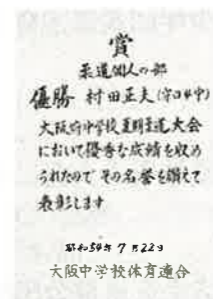 賞
柔道個人の部
優勝 村田正夫(守口四中)
大阪府中学校夏期柔道大会
において優秀な成績を収め
られたので その名誉を讃えて
表彰します
昭和54年7月22日
大阪中学校体育連合